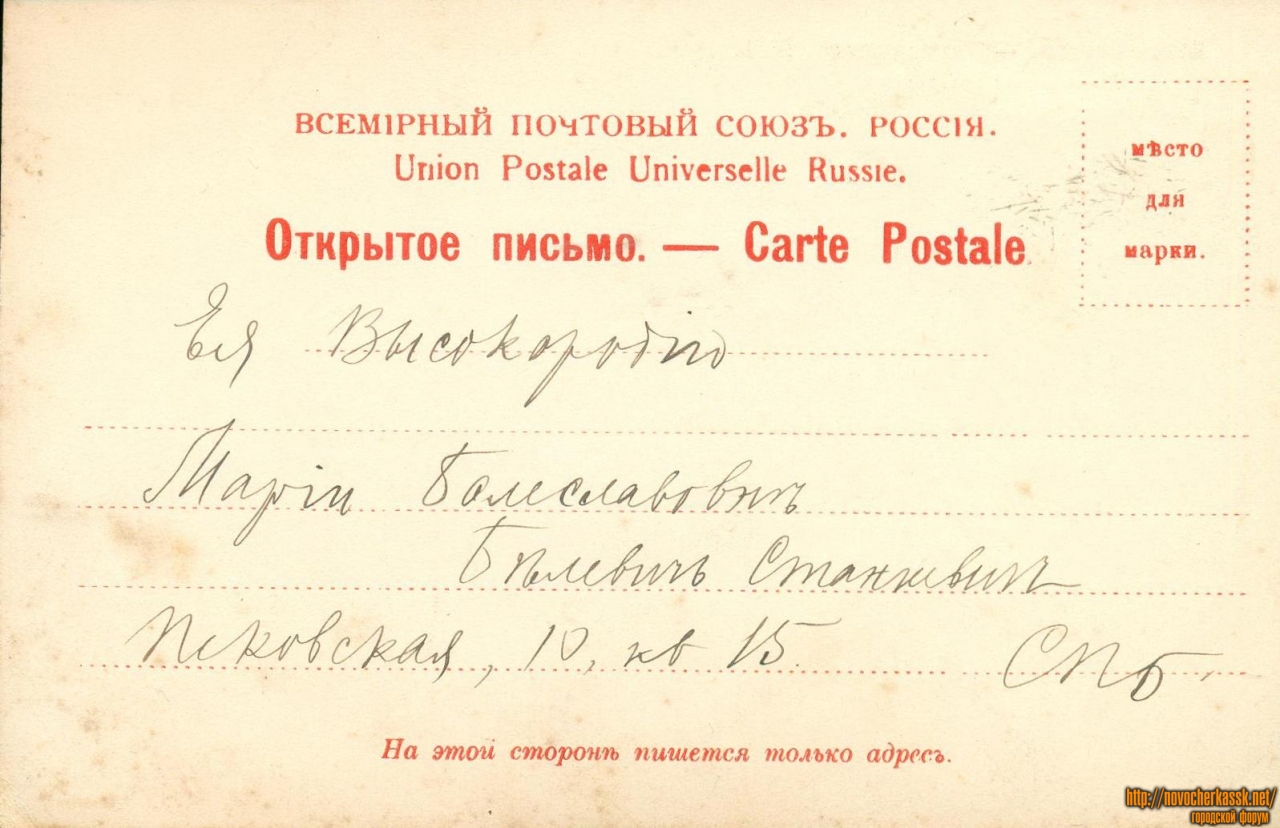 ВСЕМІРНЫЙ ПОЧТОВЫЙ СОЮЗЪ. РОССІЯ.
Union Postale Universelle Russie.
Открытое письмо. — Carte Postale
мѣсто
для
марки.
Ея Высокородію
Маріи Болеславовнѣ
Бѣлевичъ Станкевичъ
Псковская, 10, кв 15.
СПБ.
На этой сторонѣ пишется только адресъ.
http://novocherkassk.net/
городской форум